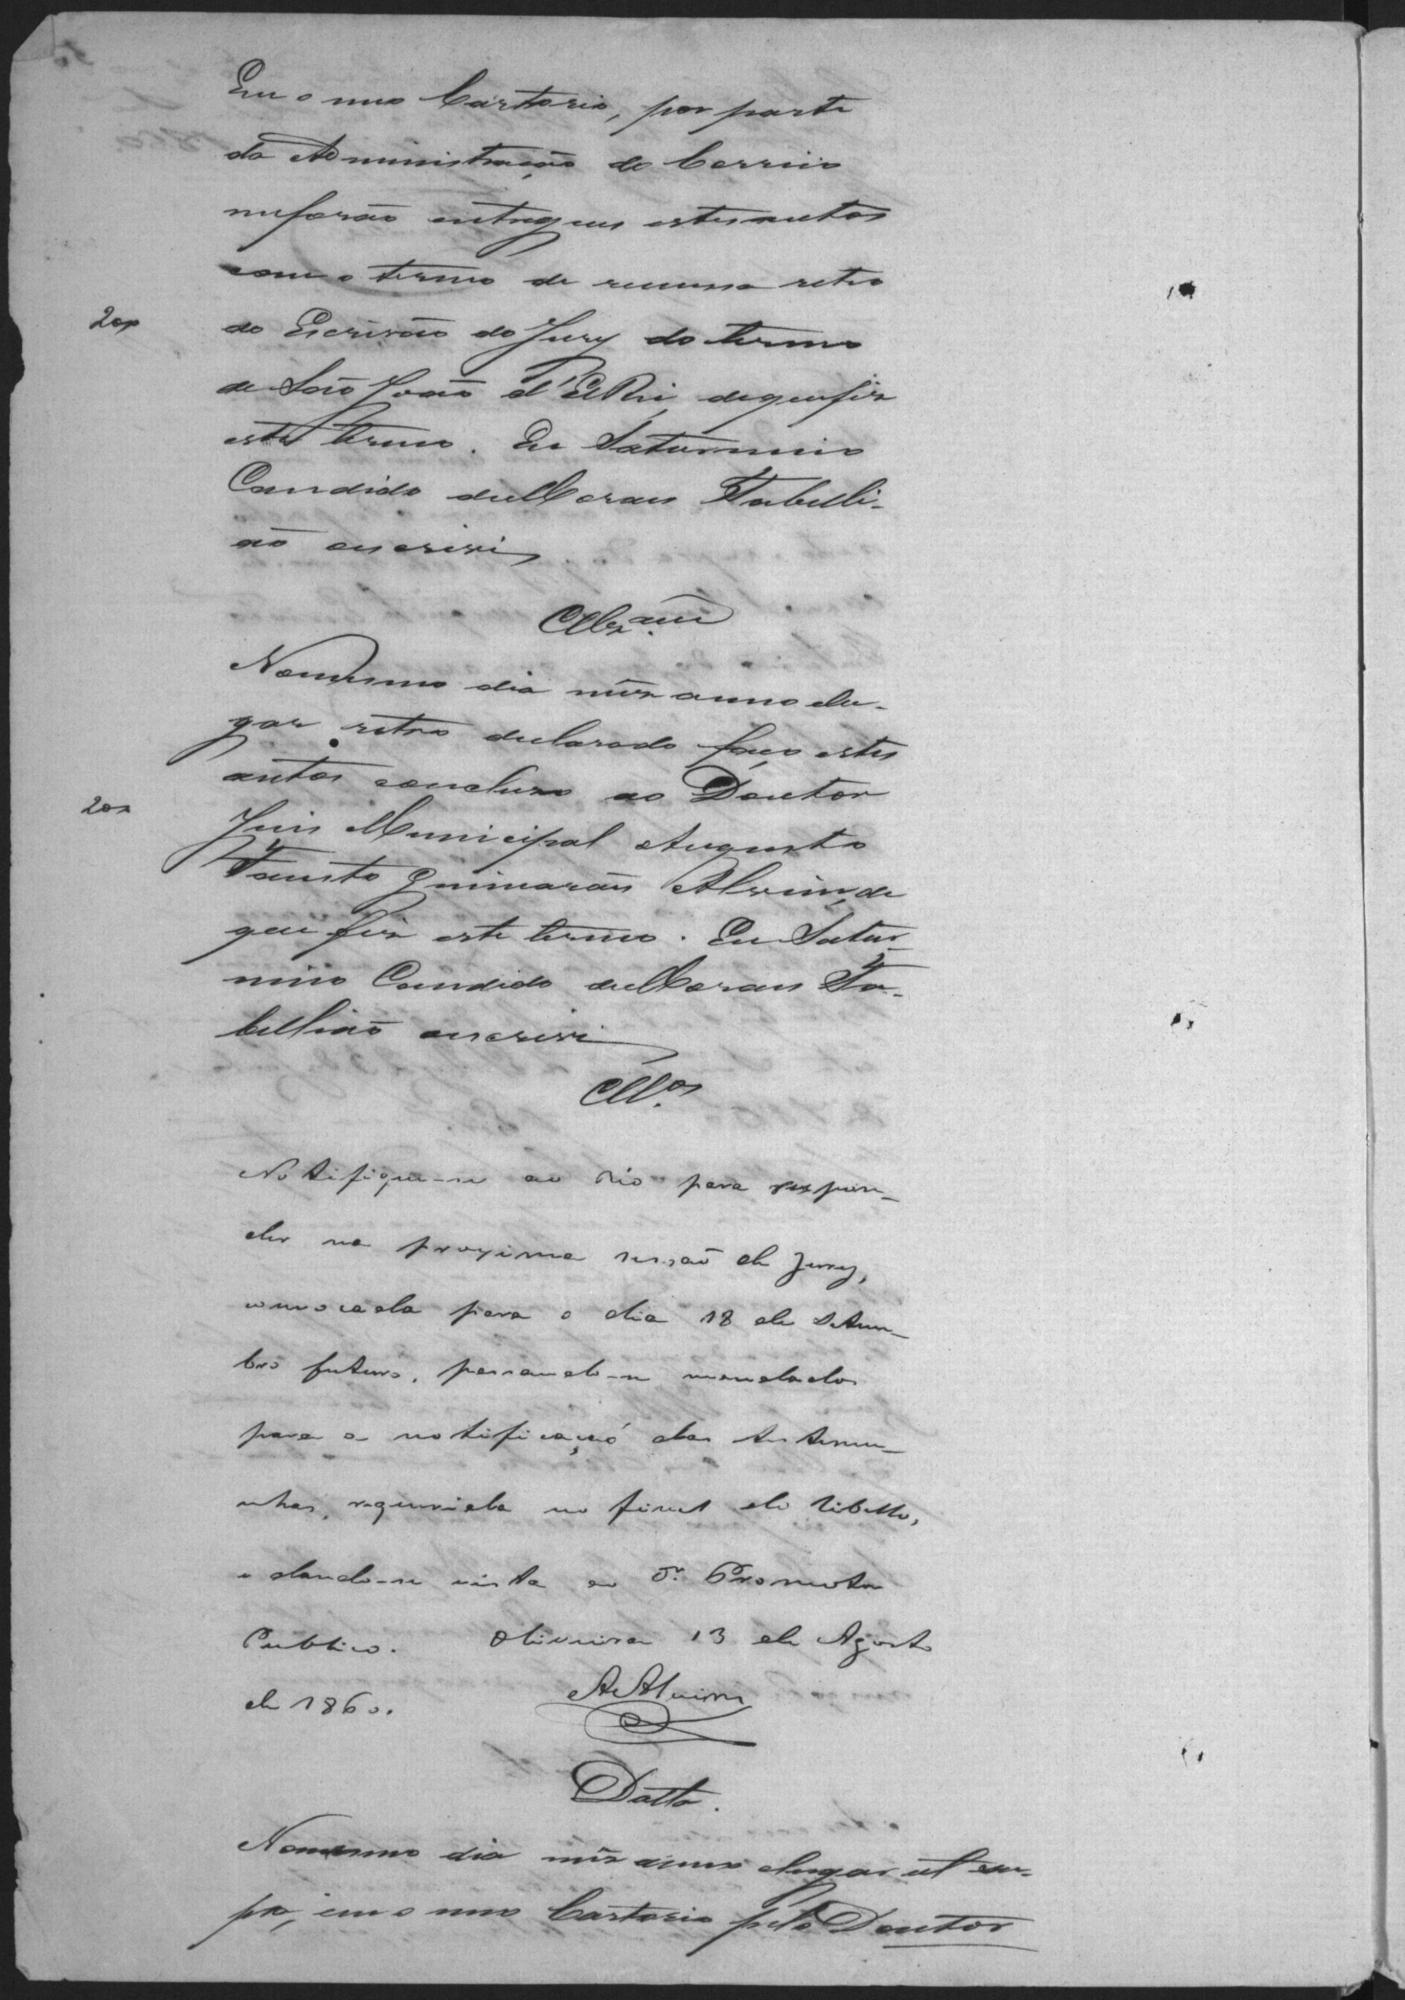 Em o meo Cartorio, por parte
da Administração do Correio
me forão entregues estes autos
com o termo de remessa retro
200
do Escrivão do Jury do termo
de São João d'El Rei, de que fiz
este termo. Eu Saturnino
Candido de Moraes Tabelli-
ão escrevi
Clz.am
No mesmo dia mez anno e lu-
gar retro declarado faço estes
autos concluso ao Doutor
200
Juis Municipal Augusto
Fausto Guimarães Alvim, de
que fiz este termo. Eu Satur-
nino Candido de Moraes Ta-
bellião escrevi
Cll.os
Notifique-se ao réo para respon-
der na proxima sessão de Jury,
convocada para o dia 18 de Setem-
bro futuro, passando-se mandados
para a notificação das testemu-
nhas, requerida no final do libello,
e dando-se vista ao Dr. Promotor
Publico. Oliveira 13 de Agosto
de 1860.
A Alvim
Datta.
No mesmo dia mez anno e lugar ut su-
pra, em o meo Cartorio pelo Doutor